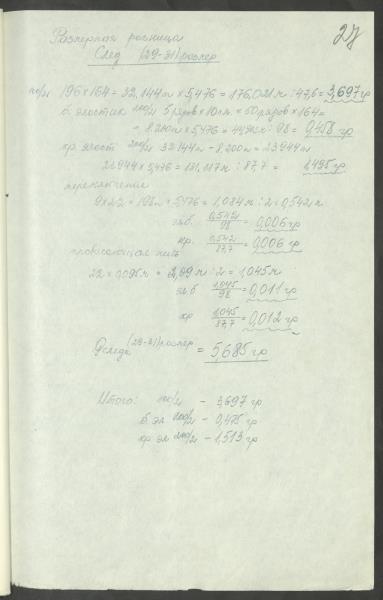 27
Размерная разница
След (29-31) размер
100/2 196 × 164 = 32,144 м × 5,476 = 176,021 м : 47,6 = 3,697 гр
б. эластик 200/2 5 рядов × 10 см. = 50 рядов × 164 =
= 8.200 м × 5,476 = 44,903 м : 98 = 0,458 гр
кр. эласт 200/2 32144 м - 8.200 м = 23944 м
23944 × 5,476 = 131,117 м : 87,7 = 1,495 гр
переключение
9 × 22 = 198 м × 5,476 = 1,084 м : 2 = 0,542 м
эл. б 0,542/98 = 0,006 гр
кр. 0,542/87,7 = 0,006 гр
провисающая нить
22 × 0,095 м = 2,09 м : 2 = 1,045 м
эл б 1,045/98 = 0,011 гр
кр 1,045/87,7 = 0,012 гр
следа (29-31) размер = 5,685 гр
Итого: 100/2 - 3,697 гр
б эл 200/2 - 0,475 гр
кр эл 200/2 - 1,513 гр